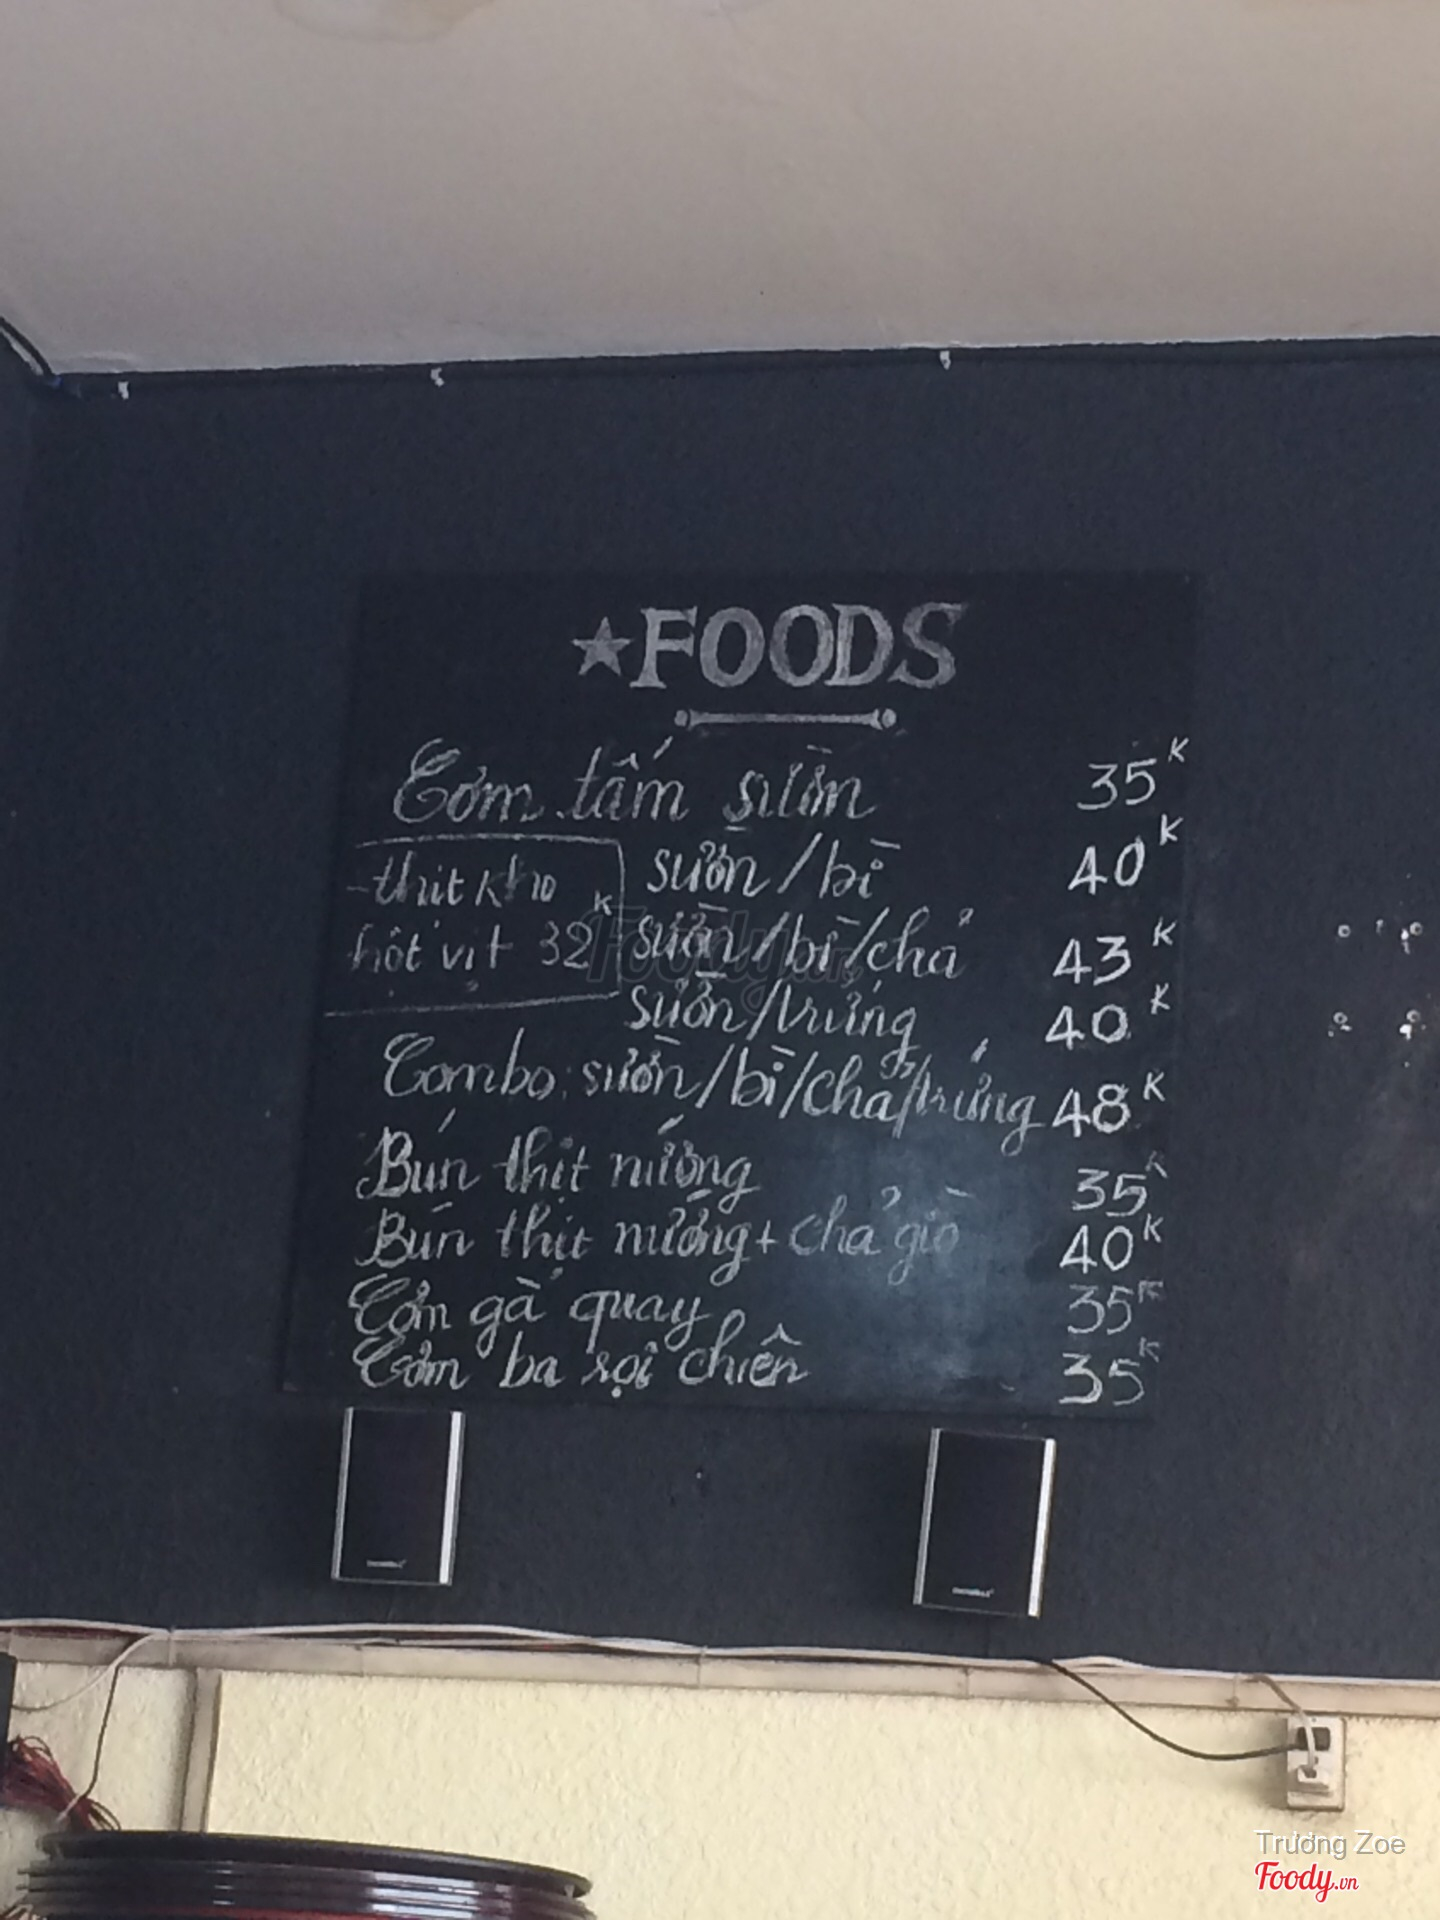 ★FOODS
Cơm tấm sườn 35K
sườn/bì 40K
-thịt kho
hột vịt 32K
sườn/bì/chả 43K
sườn/trứng 40K
Combo: sườn/bì/chả/trứng 48K
Bún thịt nướng 35K
Bún thịt nướng + chả giò 40K
Cơm gà quay 35K
Cơm ba rọi chiên 35K
Foody.vn
Trương Zoe
Foody.vn